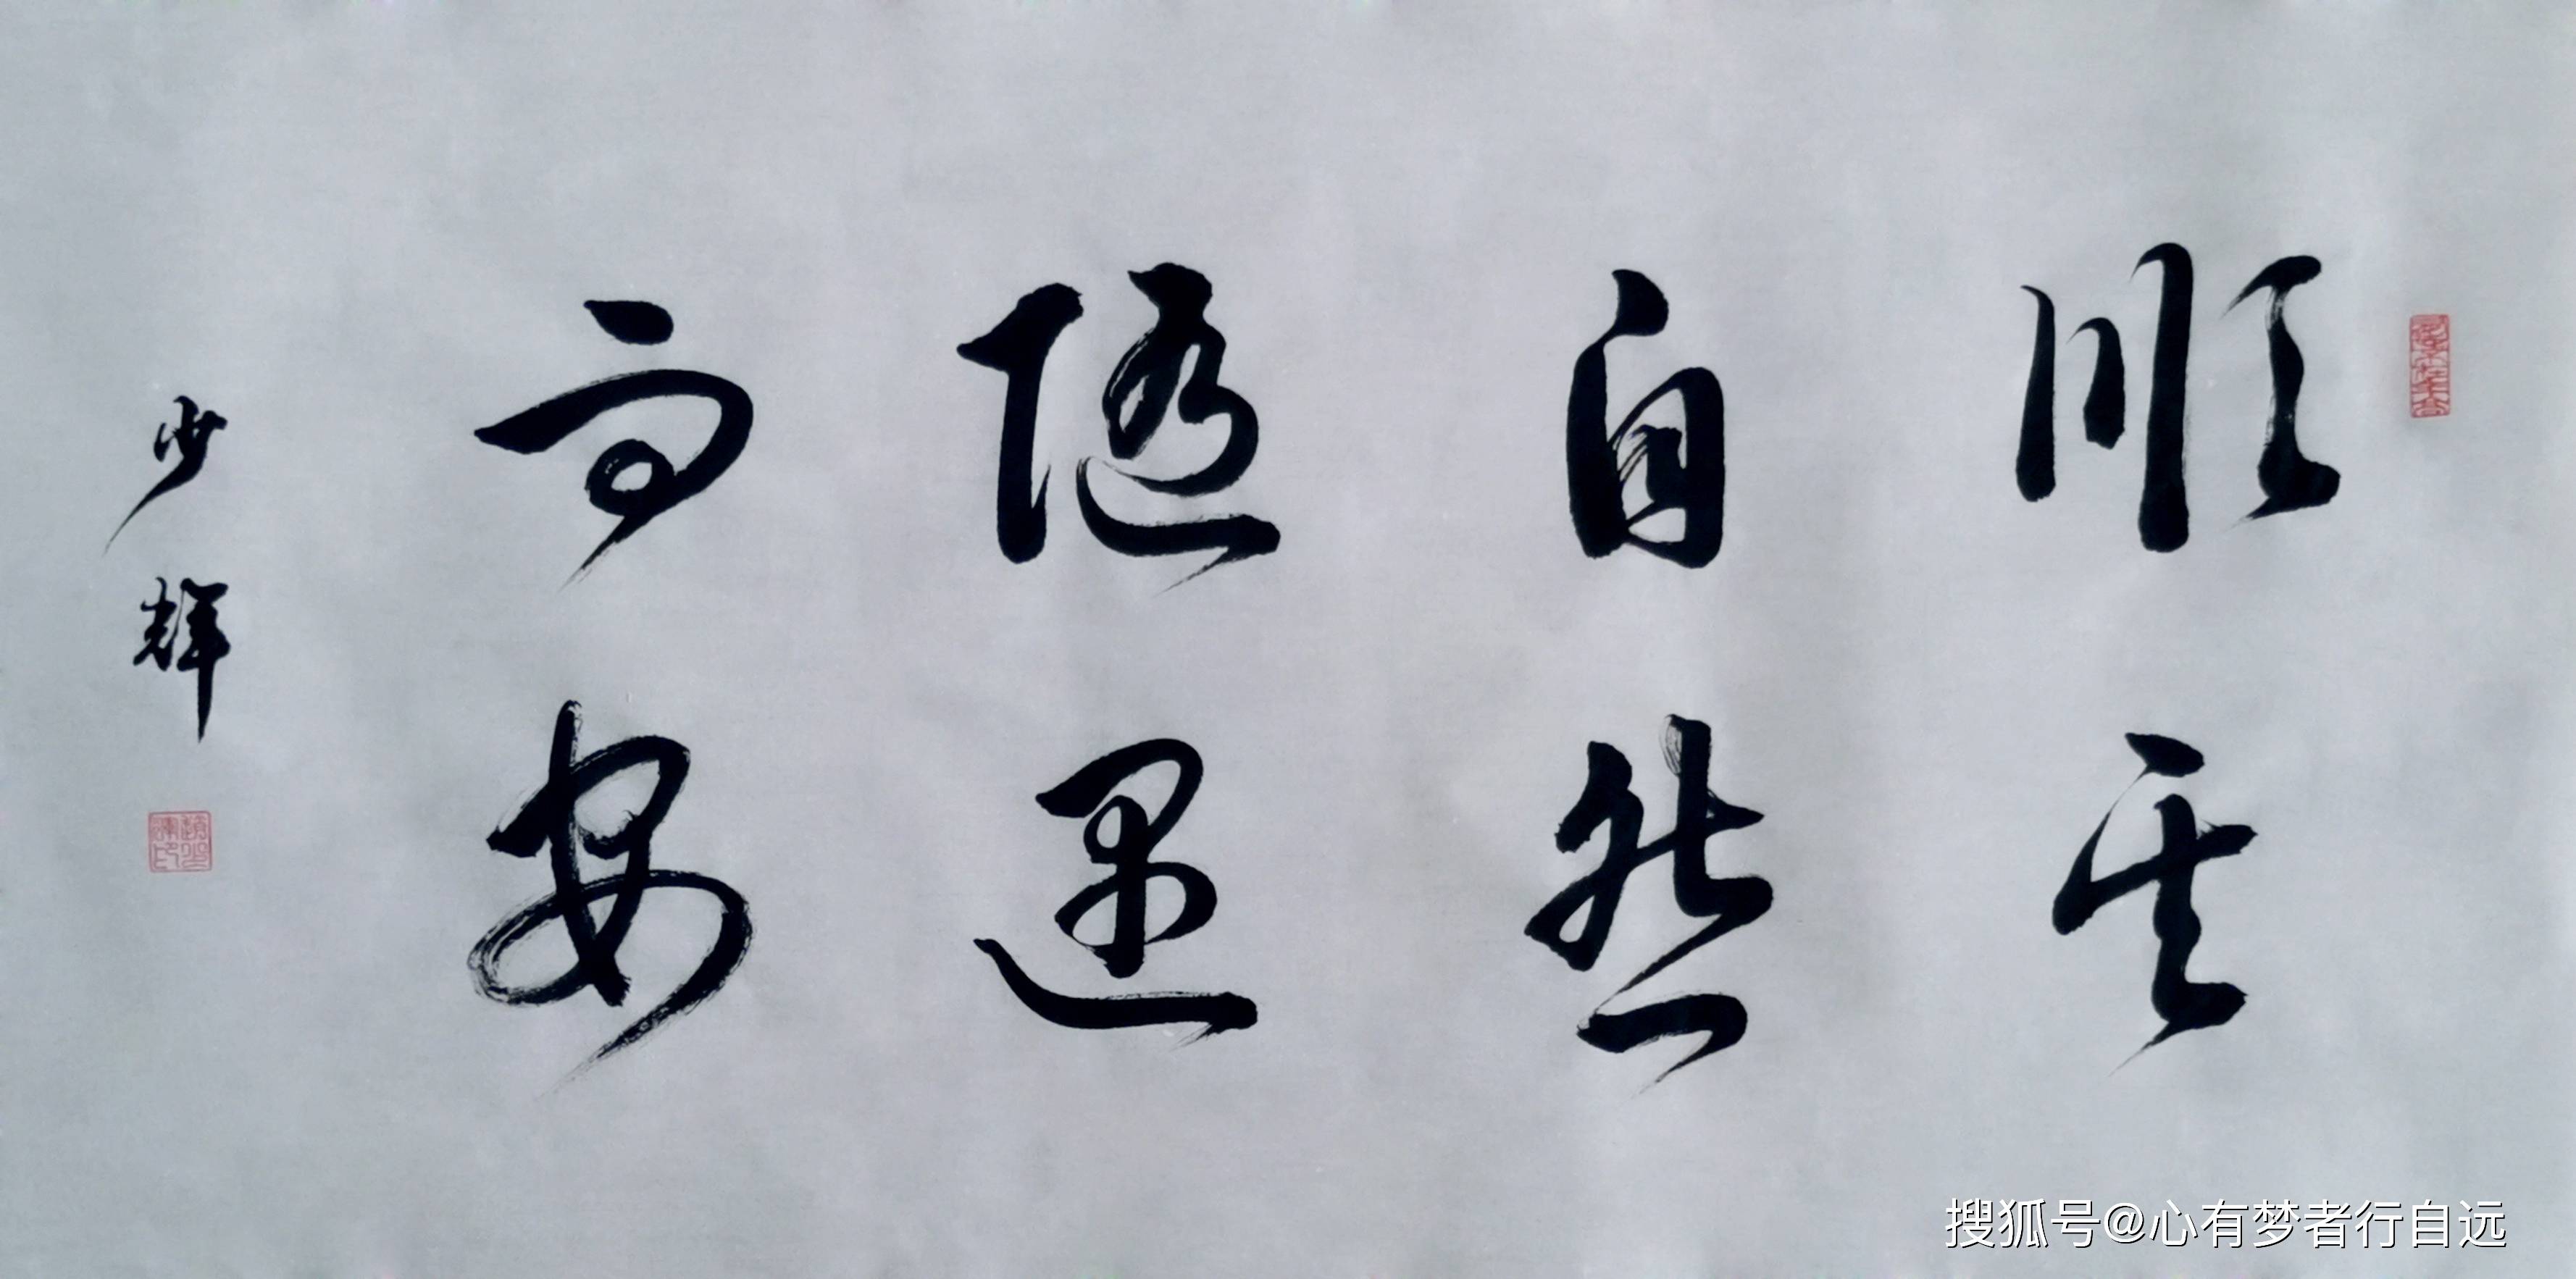 順其
自然
隨遇
而安
少輝
搜狐号@心有梦者行自远